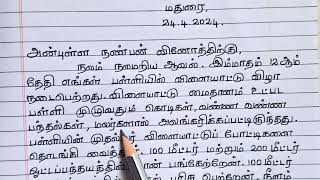 மதுரை,
24.4.2024.
அன்புள்ள நண்பன் வினோத்திற்கு,
நலம் நலமறிய ஆவல். இம்மாதம் 12ஆம்
தேதி எங்கள் பள்ளியில் விளையாட்டு விழா
நடைபெற்றது. விளையாட்டு மைதானம் உட்பட
பள்ளி முழுவதும் கொடிகள், வண்ண வண்ண
பந்தல்கள், மலர்களால் அலங்கரிக்கப்பட்டிருந்தது.
பள்ளியின் முதல்வர் விளையாட்டுப் போட்டிகளை
தொடங்கி வைத்தார். 100 மீட்டர் மற்றும் 200 மீட்டர்
ஓட்டப்பந்தயத்தில் நான் பங்கேற்றேன். 100 மீட்டர்
பரிசு பெற்றேன். நீளம்